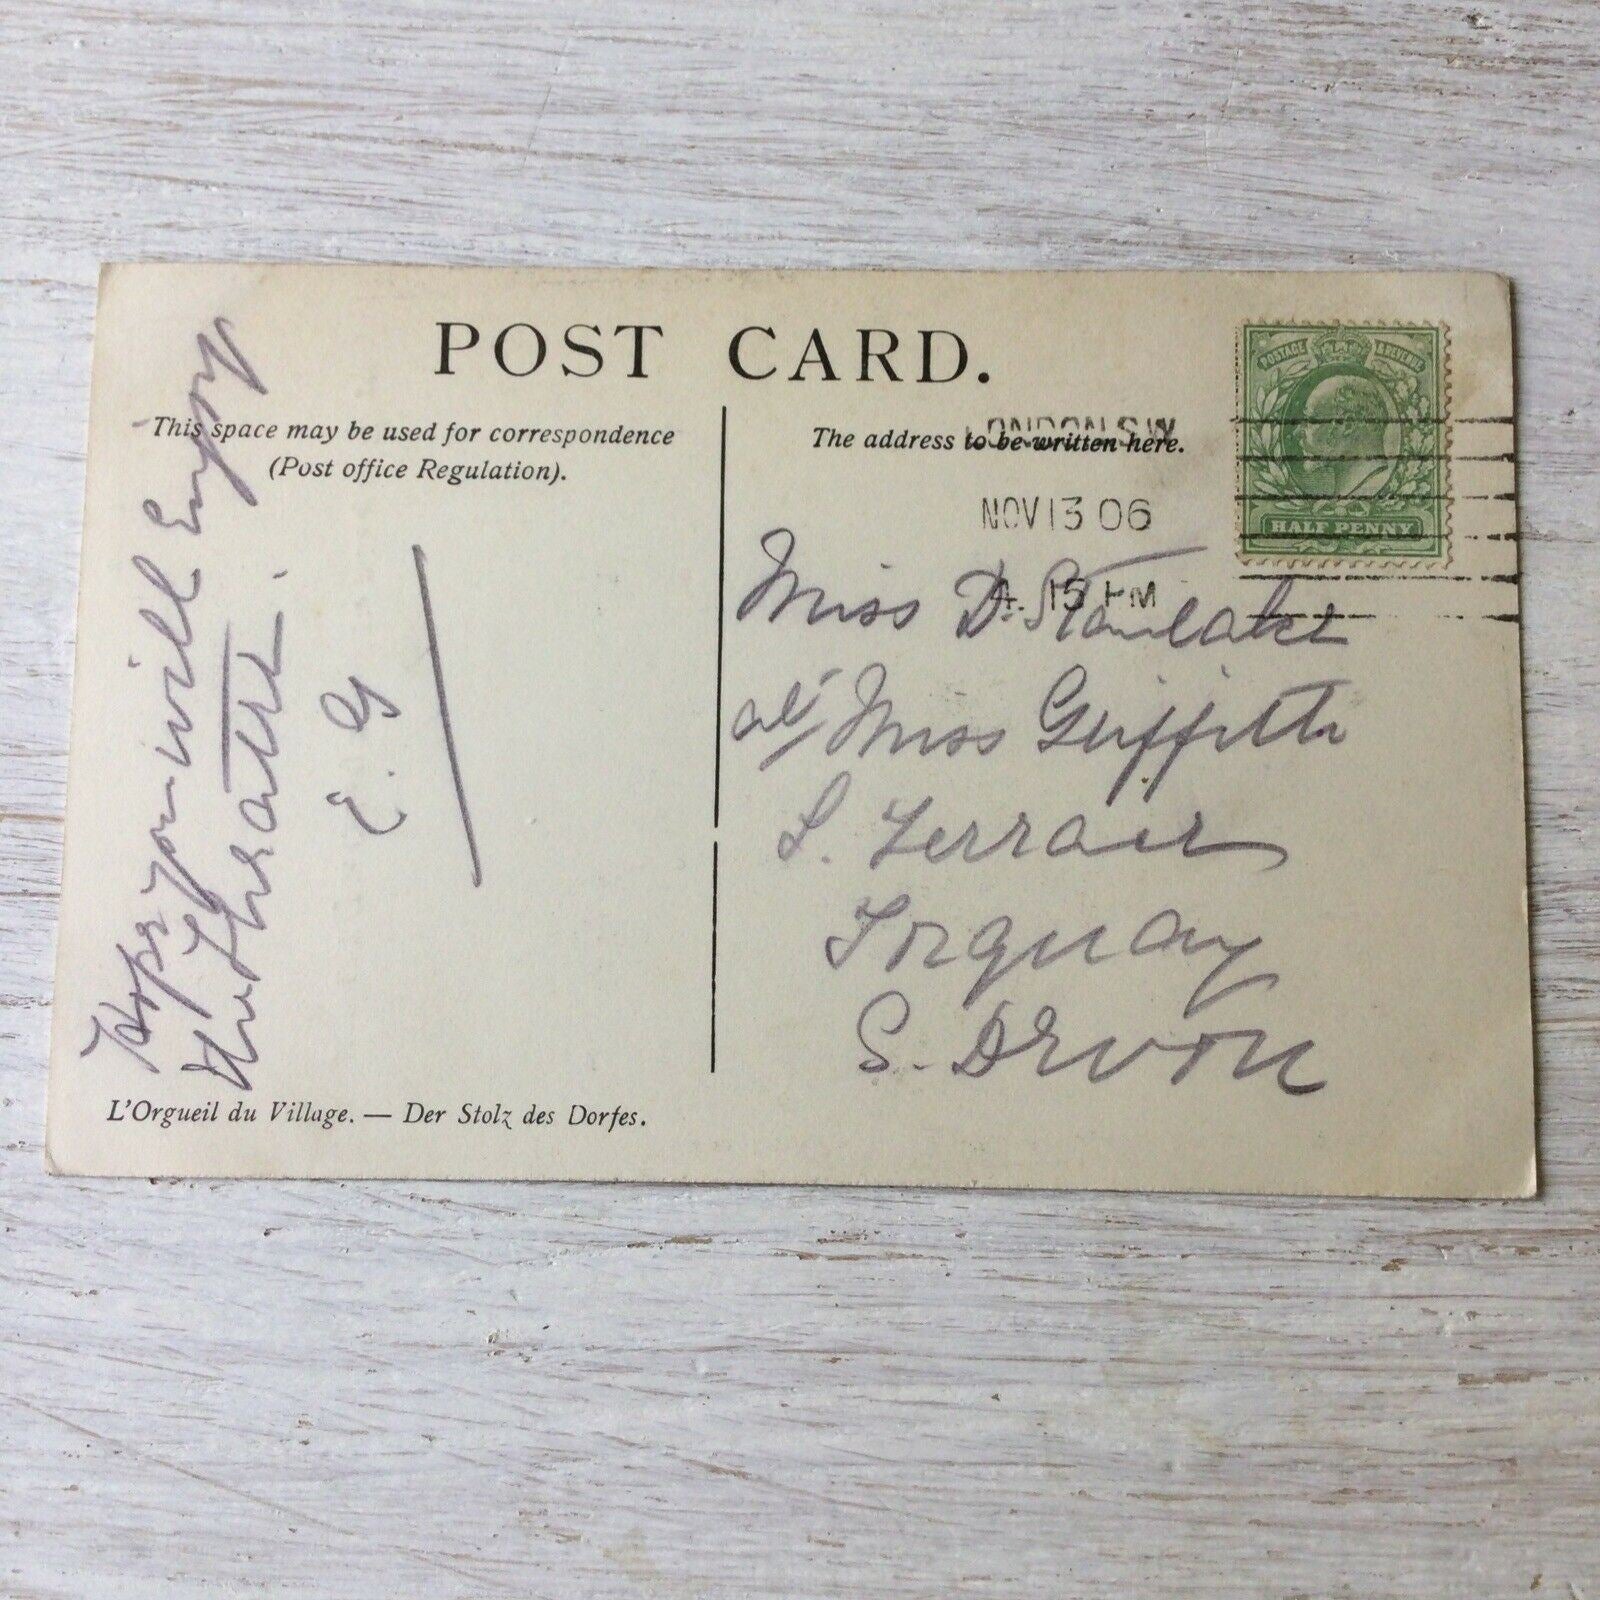 POST CARD.
This space may be used for correspondence
(Post office Regulation).
The address to be written here.
POSTAGE & REVENUE
HALF PENNY
LONDON.S.W
NOV 13 06
4. 15 PM
Hope you will Enjoy
the Theatre.
E. G
Miss D.
at Miss Griffith
Terrace
Torquay
S. Devon
L'Orgueil du Village. — Der Stolz des Dorfes.